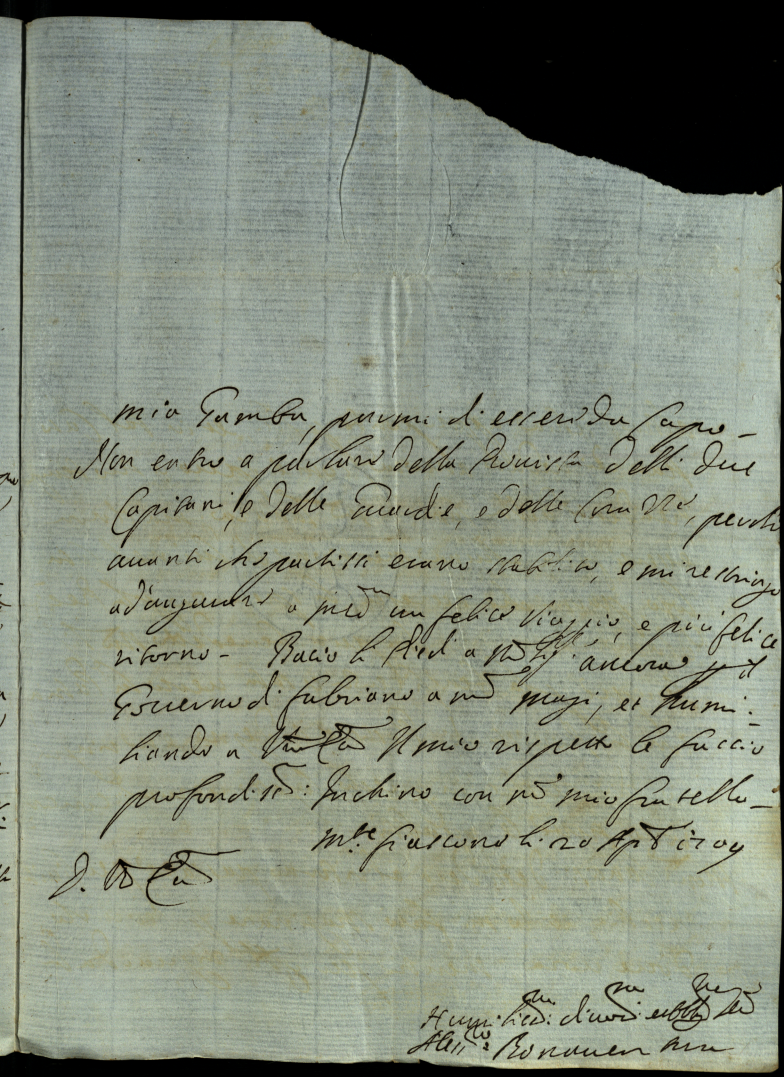 mio Gamba, parmi di esser da Capo -
Non entro a parlare della Provista delli due
Capitani, e delle Guardie, e delle Corazze, perche
avanti che partissi erano stabilite, e mi restringo
ad'augurare a un felice viaggio, e più felice
ritorno - Bacio li Piedi a ancora p il
Governo di Fabriano a mr masi, et humi-
liando a il mio rispetto le faccio
profondiss: Inchino con mr mio fratello -
M.te fiascone li 20 Aple 1709
D.
Humiliss: divot: et obblig
Aless.o Bonaventura